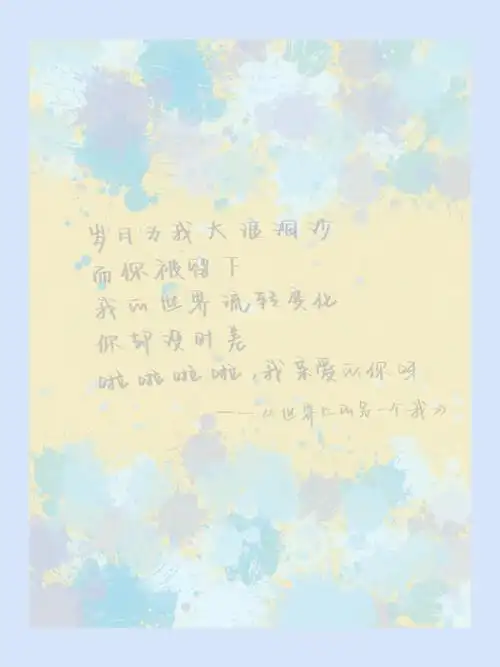 岁月为我大浪淘沙
而你被留下
我的世界流转变化
你却没时差
啦啦啦啦,我亲爱的你呀
——《世界上的另一个我》